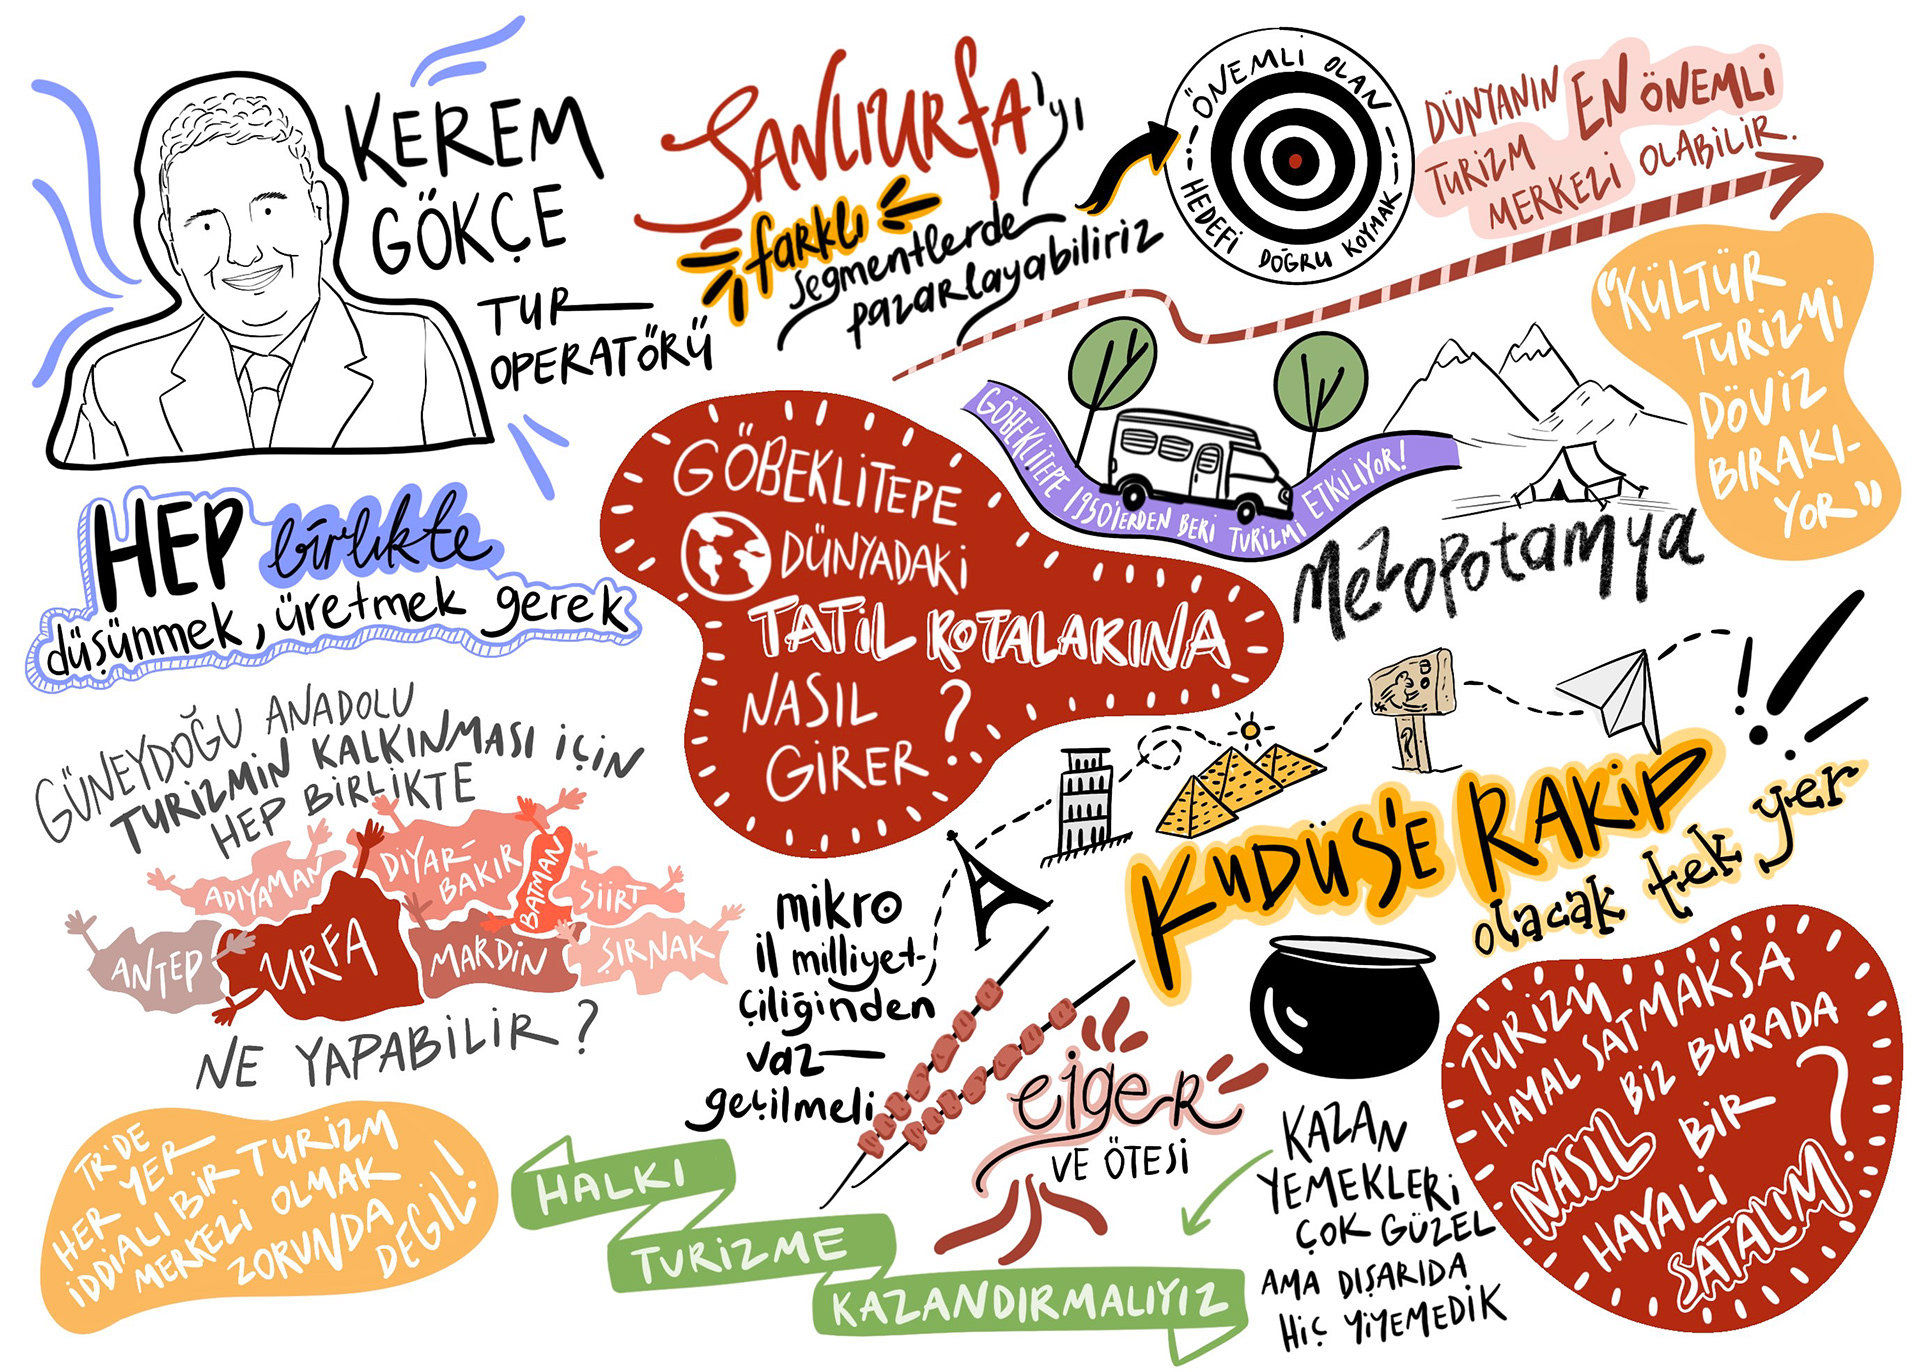 KEREM
GÖKÇE
TUR
OPERATÖRÜ
ŞANLIURFA'yı
farklı
segmentlerde
pazarlayabiliriz
"ÖNEMLİ OLAN
HEDEFİ DOĞRU KOYMAK
DÜNYANIN EN ÖNEMLİ
TURİZM
MERKEZİ OLABİLİR.
"KÜLTÜR
TURİZMİ
DÖVİZ
BIRAKI-
YOR"
GÖBEKLİTEPE 1950'lERDEN BERİ TURİZMİ ETKİLİYOR!
Mezopotamya
GÖBEKLİTEPE
DÜNYADAKİ
TATİL ROTALARINA
NASIL
GİRER?
HEP birlikte
düşünmek, üretmek gerek
GÜNEYDOĞU ANADOLU
TURİZMİN KALKINMASI İÇİN
HEP BİRLİKTE
ADIYAMAN
DİYAR-
BAKIR
BATMAN
SİİRT
ANTEP
URFA
MARDİN
ŞIRNAK
NE YAPABİLİR?
KUDÜS'E RAKİP
olacak tek yer
mikro
il milliyet-
çiliğinden
vaz
geçilmeli
ciğer
VE ÖTESİ
KAZAN
YEMEKLERİ
ÇOK GÜZEL
AMA DIŞARIDA
HİÇ YİYEMEDİK
TURİZM
HAYAL SATMAKSA
BİZ BURADA
NASIL BİR
HAYALİ
SATALIM?
TR'DE
HER YER
İDDİALI BİR TURİZM
MERKEZİ OLMAK
ZORUNDA
DEĞİL!
HALKI
TURİZME
KAZANDIRMALIYIZ